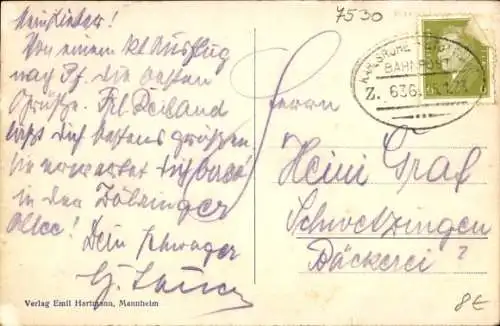 7530
Mein Lieber!
Von einem kl Ausflug
nach Pf. die besten
Grüße. Frl Reiland
läßt dich bestens grüßen
sie erwartet dich
in der Zähringer
Allee! Dein Schwager
KARLSRUHE
BAHNPOST
Z. 636
Herrn
Heini Graf
Schwetzingen
Bäckerei ?
Verlag Emil Hartmann, Mannheim
8€